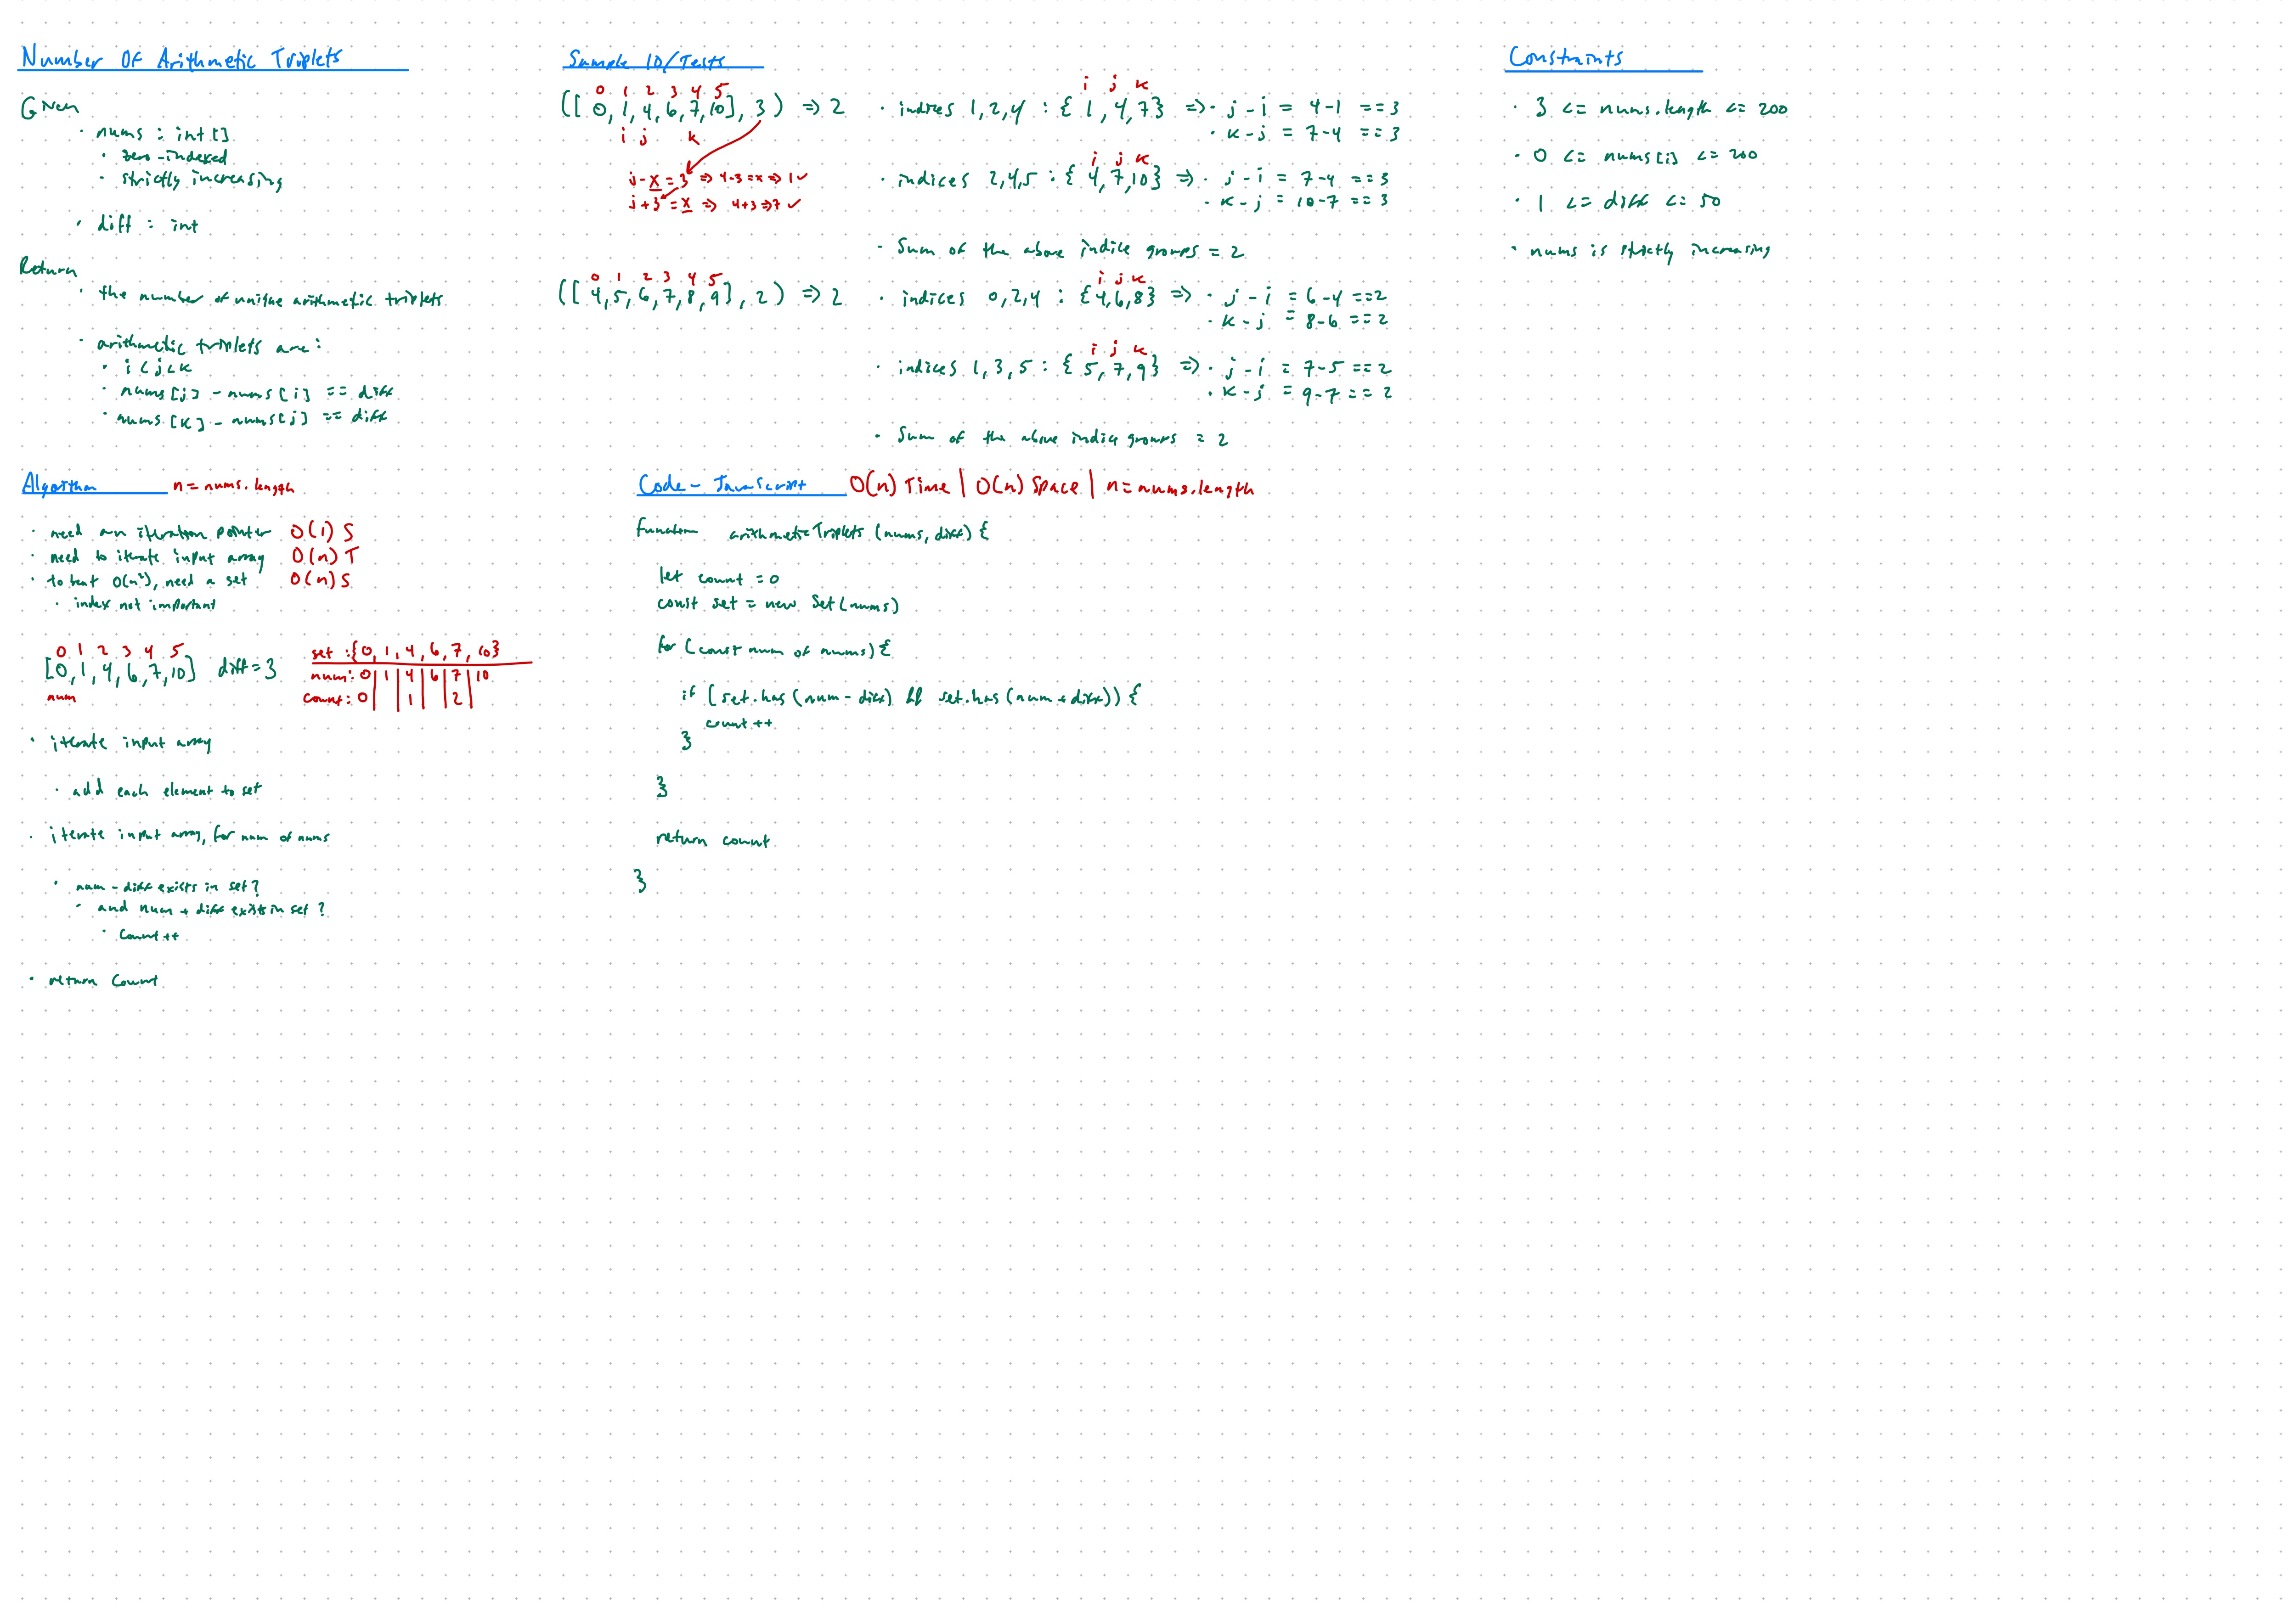 Number Of Arithmetic Triplets
Given
· nums : int []
· zero-indexed
· strictly increasing
· diff : int
Return
· the number of unique arithmetic triplets
· arithmetic triplets are:
· i < j < k
· nums[j] - nums[i] == diff
· nums[k] - nums[j] == diff
Sample IO/Tests
0 1 2 3 4 5
([0, 1, 4, 6, 7, 10], 3) => 2
i j k
j - x = 3 => 4-3 = x => 1 ✓
j + 3 = x => 4+3 => 7 ✓
i j k
· indices 1,2,4 : {1, 4, 7} => · j - i = 4-1 == 3
· k - j = 7-4 == 3
i j k
· indices 2,4,5 : {4, 7, 10} => · j - i = 7-4 == 3
· k - j = 10-7 == 3
· Sum of the above indice groups = 2
0 1 2 3 4 5
([4, 5, 6, 7, 8, 9], 2) => 2
i j k
· indices 0,2,4 : {4,6,8} => · j - i = 6-4 == 2
· k - j = 8-6 == 2
i j k
· indices 1,3,5 : {5,7,9} => · j - i = 7-5 == 2
· k - j = 9-7 == 2
· Sum of the above indice groups = 2
Constraints
· 3 <= nums.length <= 200
· 0 <= nums[i] <= 200
· 1 <= diff <= 50
· nums is strictly increasing
Algorithm n = nums.length
· need an iteration pointer O(1) S
· need to iterate input array O(n) T
· to beat O(n²), need a set O(n) S
· index not important
0 1 2 3 4 5
[0, 1, 4, 6, 7, 10] diff = 3
num
set : {0, 1, 4, 6, 7, 10}
num: 0 | 1 | 4 | 6 | 7 | 10
count: 0 | | 1 | | 2 |
· iterate input array
· add each element to set
· iterate input array, for num of nums
· num - diff exists in set?
· and num + diff exists in set?
· count++
· return count
Code - JavaScript O(n) Time | O(n) Space | n = nums.length
function arithmeticTriplets (nums, diff) {
let count = 0
const set = new Set(nums)
for (const num of nums) {
if (set.has(num - diff) && set.has(num + diff)) {
count++
}
}
return count
}